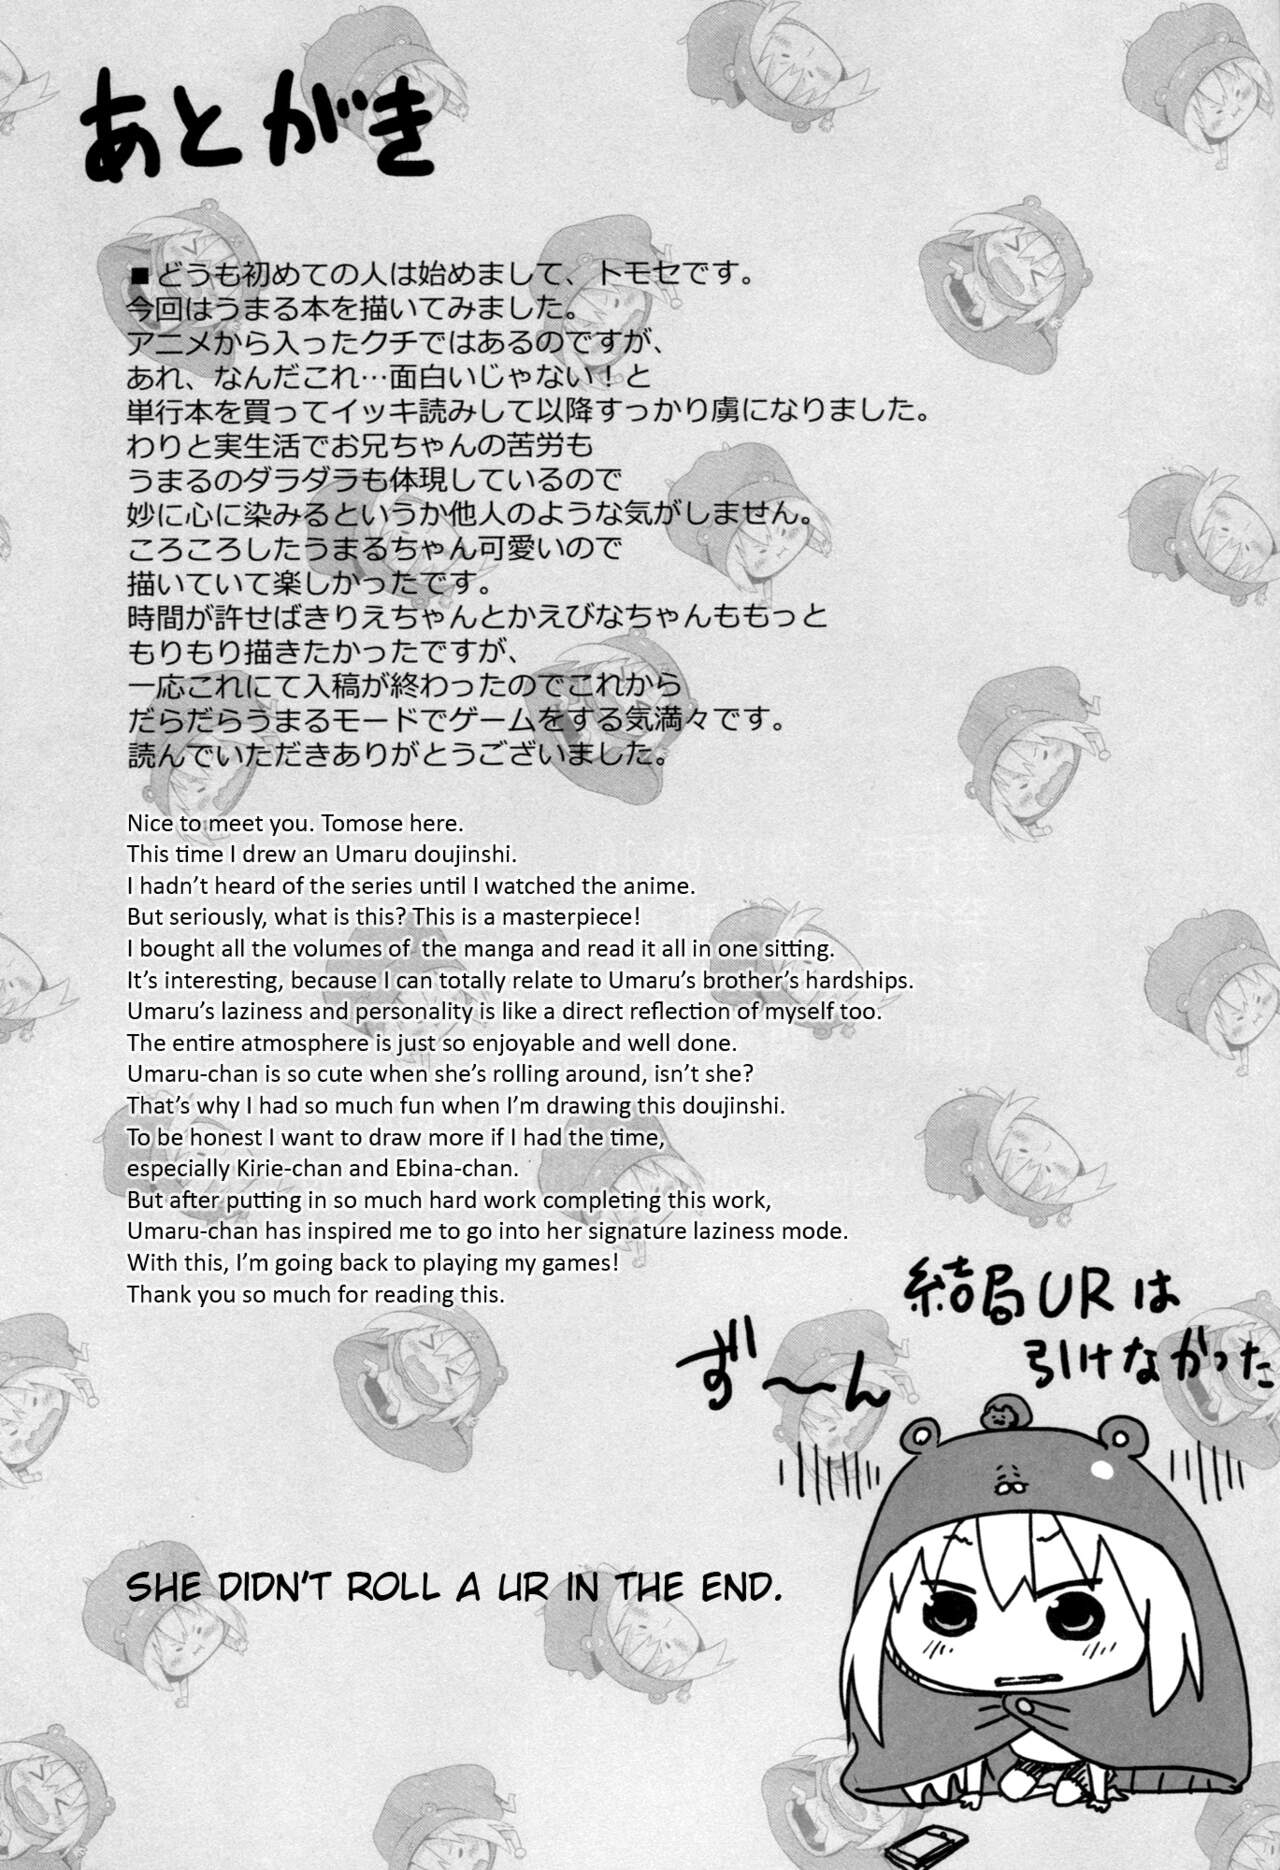 あとがき
■どうも初めての人は始めまして、トモセです。
今回はうまる本を描いてみました。
アニメから入ったクチではあるのですが、
あれ、なんだこれ…面白いじゃない！と
単行本を買ってイッキ読みして以降すっかり虜になりました。
わりと実生活でお兄ちゃんの苦労も
うまるのダラダラも体現しているので
妙に心に染みるというか他人のような気がしません。
ころころしたうまるちゃん可愛いので
描いていて楽しかったです。
時間が許せばきりえちゃんとかえびなちゃんももっと
もりもり描きたかったですが、
一応これにて入稿が終わったのでこれから
だらだらうまるモードでゲームをする気満々です。
読んでいただきありがとうございました。
Nice to meet you. Tomose here.
This time I drew an Umaru doujinshi.
I hadn't heard of the series until I watched the anime.
But seriously, what is this? This is a masterpiece!
I bought all the volumes of  the manga and read it all in one sitting.
It's interesting, because I can totally relate to Umaru's brother's hardships.
Umaru's laziness and personality is like a direct reflection of myself too.
The entire atmosphere is just so enjoyable and well done.
Umaru-chan is so cute when she's rolling around, isn't she?
That's why I had so much fun when I'm drawing this doujinshi.
To be honest I want to draw more if I had the time,
especially Kirie-chan and Ebina-chan.
But after putting in so much hard work completing this work,
Umaru-chan has inspired me to go into her signature laziness mode.
With this, I'm going back to playing my games!
Thank you so much for reading this.
結局URは
引けなかった
ず〜ん
SHE DIDN'T ROLL A UR IN THE END.